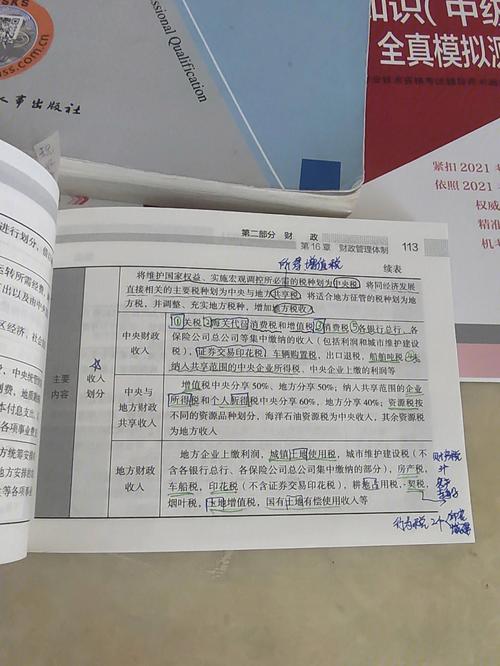 Professional Qualification
ss.com.cn
人事出版社
知识（中级
全真模拟测
紧扣2021年
依照2021
权威
精准
机考
进行划分，
运转所需经费，
区经济、社会
第二部分 财 政
第16章 财政管理体制 113
所得 增值税
续表
将维护国家权益、实施宏观调控所必需的税种划为中央税，将同经济发展
直接相关的主要税种划为中央与地方共享税，将适合地方征管的税种划为地
方税，并调整、充实地方税种，增加地方税收入
主要
内容
收入
划分
中央财政
收入
关税，海关代征消费税和增值税，消费税，各银行总行、各
保险公司总公司等集中缴纳的收入（包括利润和城市维护建设
税），证券交易印花税，车辆购置税，出口退税，船舶吨税，未
纳入共享范围的中央企业所得税、中央企业上缴的利润等
中央与
地方财政
共享收入
增值税中央分享50%、地方分享50%；纳入共享范围的企业
所得税和个人所得税中央分享60%，地方分享40%；资源税按
不同的资源品种划分，海洋石油资源税为中央收入，其余资源
税为地方收入
地方财政
收入
地方企业上缴利润，城镇土地使用税，城市维护建设税（不
含各银行总行、各保险公司总公司集中缴纳的部分），房产税，
车船税，印花税（不含证券交易印花税），耕地占用税，契税，
烟叶税，土地增值税，国有土地有偿使用收入等